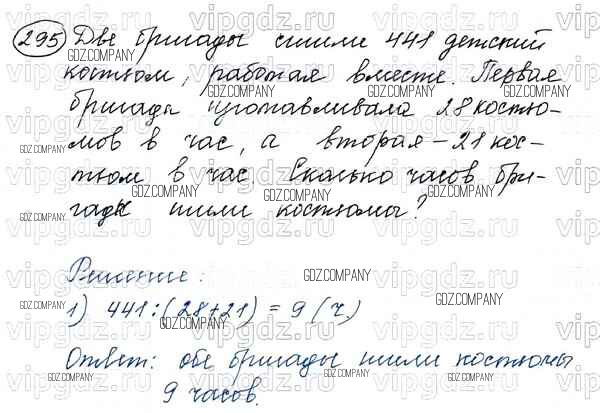 295 Две бригады сшили 441 детский
костюм, работая вместе. Первая
бригада изготавливала 28 костю-
мов в час, а вторая - 21 кос-
тюм в час. Сколько часов бри-
гады шили костюмы?
Решение:
1) 441:(28+21) = 9 (ч.)
Ответ: обе бригады шили костюмы
9 часов.